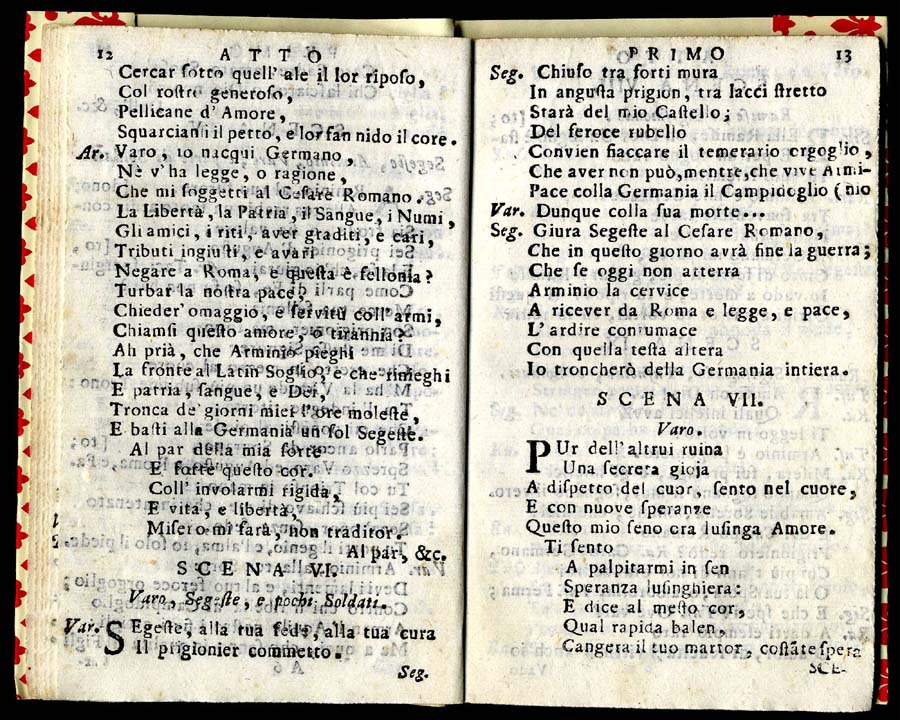 12 ATTO
Cercar sotto quell' ale il lor riposo,
Col rostro generoso,
Pellicane d' Amore,
Squarcianſi il petto, e lor fan nido il core.
Ar. Varo, io nacqui Germano,
Nè v' ha legge, o ragione,
Che mi ſoggetti al Ceſare Romano.
La Libertà, la Patria, il Sangue, i Numi,
Gli amici, i riti, aver graditi, e cari,
Tributi ingiuſti, e avari
Negare a Roma, e queſta è fellonia?
Turbar la noſtra pace,
Chieder' omaggio, e ſervitù coll' armi,
Chiamſi queſto amore, o tirannia?
Ah prià, che Arminio pieghi
La fronte al Latin Soglio, e che rinieghi
E patria, ſangue, e Dei,
Tronca de' giorni miei l' ore moleſte,
E baſti alla Germania un ſol Segeſte.
Al par della mia ſorte
E' forte queſto cor.
Coll' involarmi rigida,
E vita, e libertà,
Miſero mi farà, non traditor.
Al par, &c.
SCENA VI.
Varo, Segeſte, e pochi Soldati.
Var. SEgeſte, alla tua fede, alla tua cura
Il prigionier commetto.
Seg.
PRIMO 13
Seg. Chiuſo tra forti mura
In anguſta prigion, tra lacci ſtretto
Starà del mio Caſtello;
Del feroce rubello
Convien fiaccare il temerario orgoglio,
Che aver non può, mentre, che vive Armi-
Pace colla Germania il Campidoglio (nio
Var. Dunque colla ſua morte...
Seg. Giura Segeſte al Ceſare Romano,
Che in queſto giorno avrà fine la guerra;
Che ſe oggi non atterra
Arminio la cervice
A ricever da Roma e legge, e pace,
L' ardire contumace
Con quella teſta altera
Io troncherò della Germania intiera.
SCENA VII.
Varo.
PUr dell' altrui ruina
Una ſecreta gioja
A diſpetto del cuor, ſento nel cuore,
E con nuove ſperanze
Queſto mio ſeno ora luſinga Amore.
Ti ſento
A palpitarmi in ſen
Speranza luſinghiera:
E dice al meſto cor,
Qual rapida balen,
Cangerà il tuo martor, coſtãte ſpera
SCE-